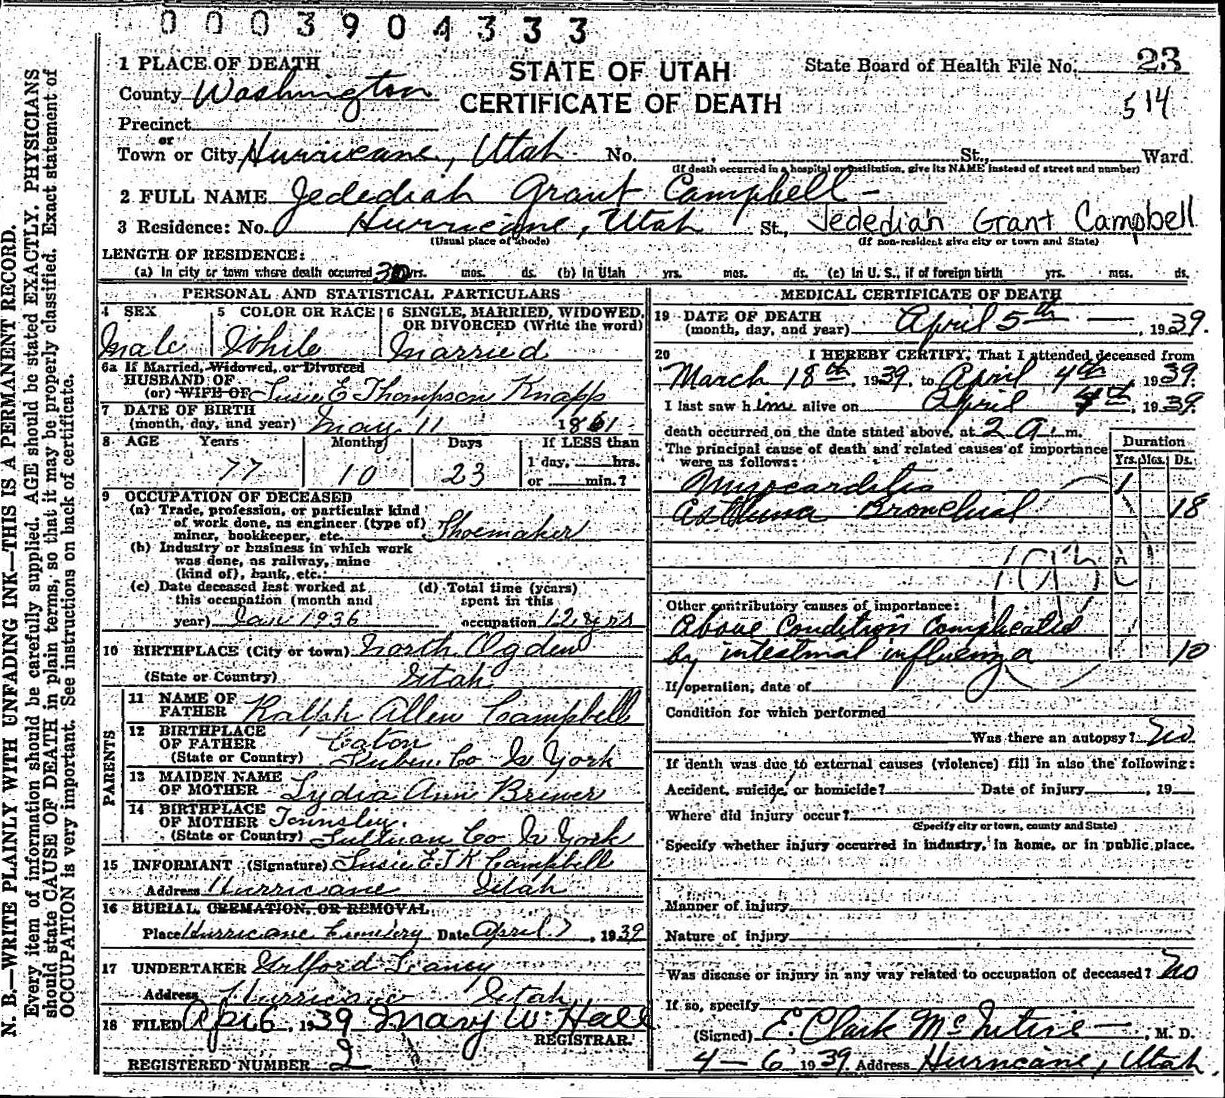 0003904333
1 PLACE OF DEATH
STATE OF UTAH
State Board of Health File No. 23
County Washington
CERTIFICATE OF DEATH
514
Precinct
or
Town or City Hurricane, Utah. No. , St., Ward.
(If death occurred in a hospital or institution, give its NAME instead of street and number)
2 FULL NAME Jedediah Grant Campbell
3 Residence: No. Hurricane, Utah St., Jedediah Grant Campbell
(Usual place of abode) (If non-resident give city or town and State)
LENGTH OF RESIDENCE:
(a) In city or town where death occurred 30 yrs. mos. ds. (b) In Utah yrs. mos. ds. (c) In U. S., if of foreign birth yrs. mos. ds.
PERSONAL AND STATISTICAL PARTICULARS
4 SEX 5 COLOR OR RACE 6 SINGLE, MARRIED, WIDOWED,
OR DIVORCED (Write the word)
Male White Married
6a If Married, Widowed, or Divorced
HUSBAND OF
(or) WIFE OF Susie E Thompson Knapp
7 DATE OF BIRTH
(month, day, and year) May 11 1861
8 AGE Years Months Days If LESS than
1 day, hrs.
77 10 23 or min.?
9 OCCUPATION OF DECEASED
(a) Trade, profession, or particular kind
of work done, as engineer (type of)
miner, bookkeeper, etc. Shoemaker
(b) Industry or business in which work
was done, as railway, mine
(kind of), bank, etc.
(c) Date deceased last worked at (d) Total time (years)
this occupation (month and spent in this
year) Jan 1936 occupation 12 yrs
10 BIRTHPLACE (City or town) North Ogden
(State or Country) Utah
PARENTS
11 NAME OF
FATHER Ralph Allen Campbell
12 BIRTHPLACE
OF FATHER Caton
(State or Country) Stuben Co N York
13 MAIDEN NAME
OF MOTHER Lydia Ann Brewer
14 BIRTHPLACE
OF MOTHER
(State or Country) Sullivan Co N York
15 INFORMANT (Signature) Susie E T K Campbell
Address Hurricane Utah
16 BURIAL CREMATION, OR REMOVAL
Place Hurricane Cemetery Date April 7, 1939
17 UNDERTAKER
Address Hurricane Utah
18 FILED Apr 6, 1939 Mary W. Hall
REGISTRAR.
REGISTERED NUMBER 2
MEDICAL CERTIFICATE OF DEATH
19 DATE OF DEATH
(month, day, and year) April 5th — , 1939.
20 I HEREBY CERTIFY, That I attended deceased from
March 18th, 1939 to April 4th, 1939.
I last saw him alive on April 4th, 1939.
death occurred on the date stated above, at 2 a. m.
The principal cause of death and related causes of importance
were as follows:
Duration
Yrs. Mos. Ds.
Myocarditis 1
Asthma Bronchial 18
Other contributory causes of importance:
Above Condition Complicated
by intestinal influenza 10
If operation, date of
Condition for which performed
Was there an autopsy? No
If death was due to external causes (violence) fill in also the following:
Accident, suicide, or homicide? Date of injury , 19
Where did injury occur?
(Specify city or town, county and State)
Specify whether injury occurred in industry, in home, or in public place.
Manner of injury
Nature of injury
Was disease or injury in any way related to occupation of deceased? No
If so, specify
(Signed) E. Clark McIntire — , M. D.
4-6 1939. Address Hurricane, Utah.
N. B.—WRITE PLAINLY WITH UNFADING INK—THIS IS A PERMANENT RECORD.
Every item of information should be carefully supplied. AGE should be stated EXACTLY. PHYSICIANS
should state CAUSE OF DEATH in plain terms, so that it may be properly classified. Exact statement of
OCCUPATION is very important. See instructions on back of certificate.